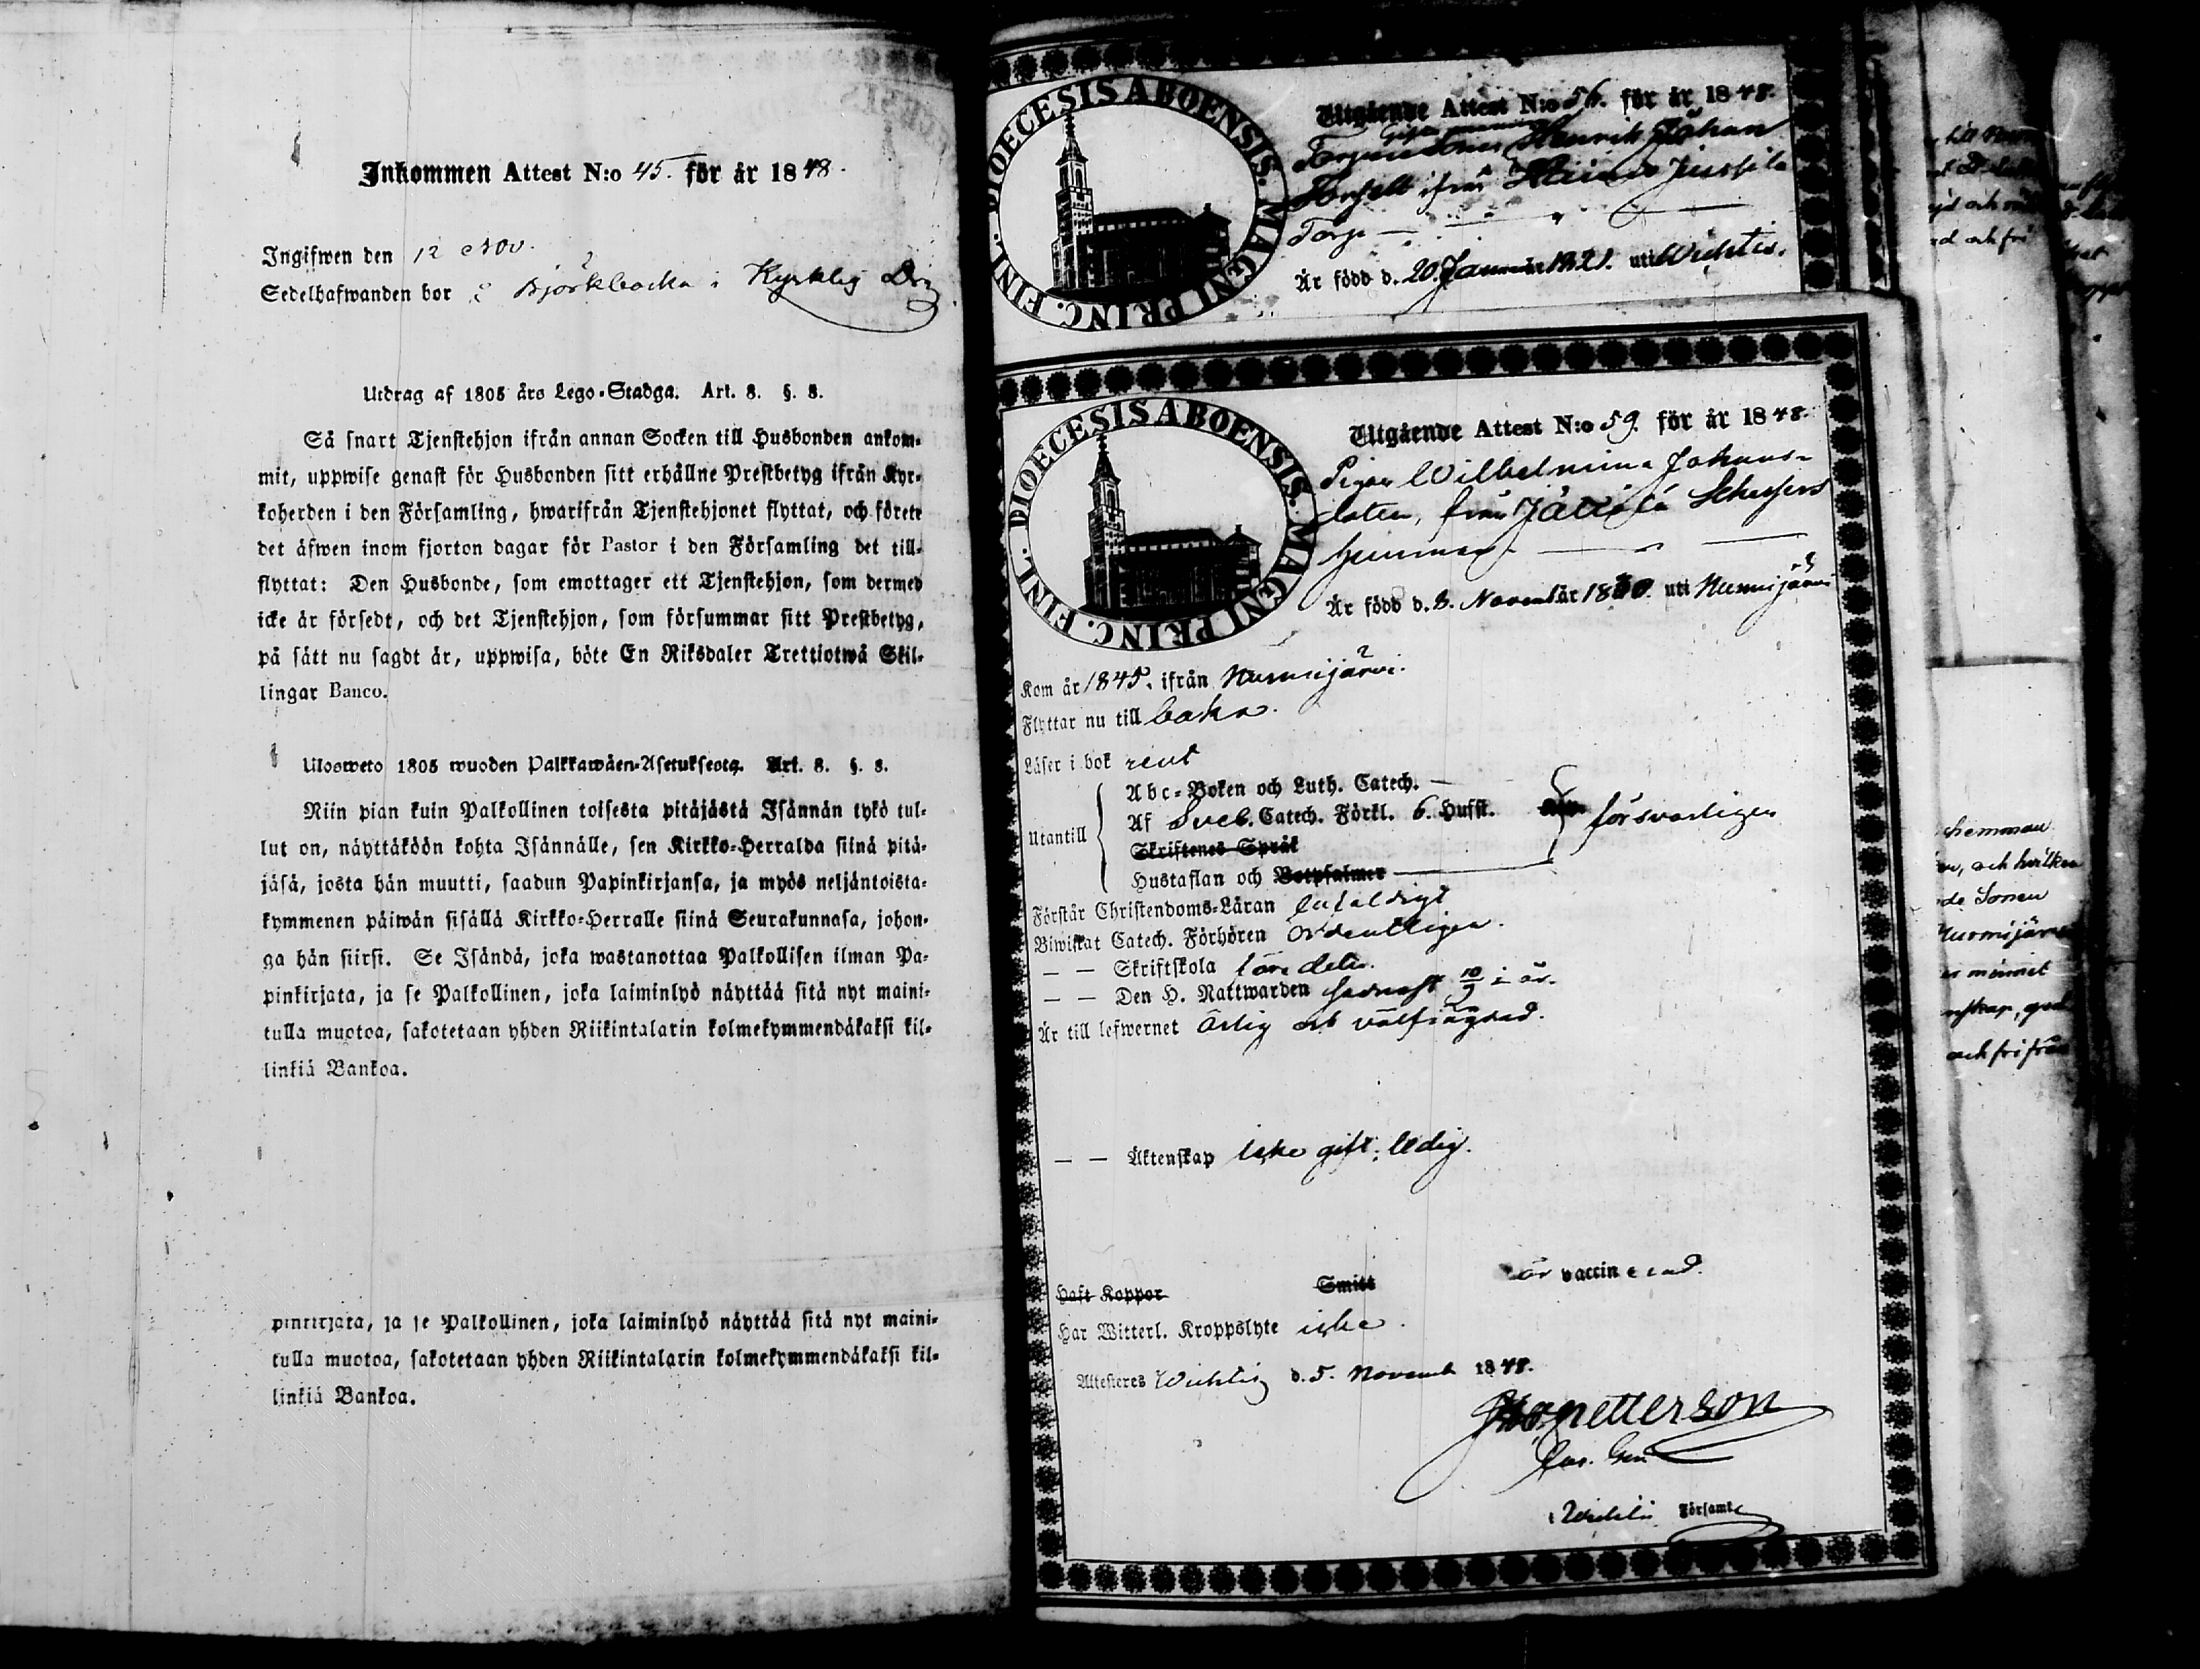 Inkommen Attest N:o 45. för år 1848.
Ingifwen den 12 Nov.
Sedelhafwanden bor i Björkbacka i Kyrkby
Utdrag af 1805 års Lego-Stadga. Art. 8. §. 8.
Så snart Tjenstehjon ifrån annan Socken till Husbonden ankom-
mit, uppwise genast för Husbonden sitt erhållne Prestbetyg ifrån Kyr-
koherden i den Församling, hwarifrån Tjenstehjonet flyttat, och förete
det äfwen inom fjorton dagar för Pastor i den Församling det till-
flyttat: Den Husbonde, som emottager ett Tjenstehjon, som dermed
icke är försedt, och det Tjenstehjon, som försummar sitt Prestbetyg,
på sätt nu sagdt är, uppwisa, böte En Riksdaler Trettiotwå Skil-
lingar Banco.
Ulosweto 1805 wuoden Palkkawäen-Asetuksesta. Art. 8. §. 8.
Niin pian kuin Palkollinen toisesta pitäjästä Isännän tykö tul-
lut on, näyttäköön kohta Isännälle, sen Kirkko-Herralda siinä pitä-
jäsä, josta hän muutti, saadun Papinkirjansa, ja myös neljäntoista-
kymmenen päiwän sisällä Kirkko-Herralle siinä Seurakunnasa, johon-
ga hän siirsi. Se Isändä, joka wastanottaa Palkollisen ilman Pa-
pinkirjata, ja se Palkollinen, joka laiminlyö näyttää sitä nyt maini-
tulla muotoa, sakotetaan yhden Riikintalarin kolmekymmendäkaksi kil-
linkiä Bankoa.
pinkirjata, ja se Palkollinen, joka laiminlyö näyttää sitä nyt maini-
tulla muotoa, sakotetaan yhden Riikintalarin kolmekymmendäkaksi kil-
linkiä Bankoa.
DIOECESIS ABOENSIS. MAGNI PRINC. FINL.
Utgående Attest N:o 56. för år 1848.
Henrik Johan
ifrån Jussila
Torp
Är född d. 20. Januari år 1821. uti Wichtis.
DIOECESIS ABOENSIS. MAGNI PRINC. FINL.
Utgående Attest N:o 59. för år 1848.
Pigan Wilhelmina Johans-
dotter, från Jättölä
hemman
Är född d. 8. Novembr år 1830 uti Nurmijärvi
Kom år 1845. ifrån Nurmijärvi.
Flyttar nu till baka.
Läser i bok rent
Utantill
Abc-Boken och Luth. Catech.
Af Sveb. Catech. Förkl. 6. Hufst. försvarligen
Skriftenes Språk
Hustaflan och Botpsalmer
Förstår Christendoms-Läran enfaldigt
Biwistat Catech. Förhören ordentligen.
— — Skriftskola
— — Den H. Nattwarden senast 10/9 i år.
Är till lefwernet ärlig och välfrägdad.
— — Äktenskap icke gift; ledig.
Haft Koppor Smitt är vaccinerad.
Har Witterl. Kroppslyte icke.
Attesteres Wichtis d. 5. Novemb 1848.
Petterson
i Wichtis Församl.
till
och
och fri
hemman
och hvilken
de Sonen
Nurmijärvi
minnet
och fri från